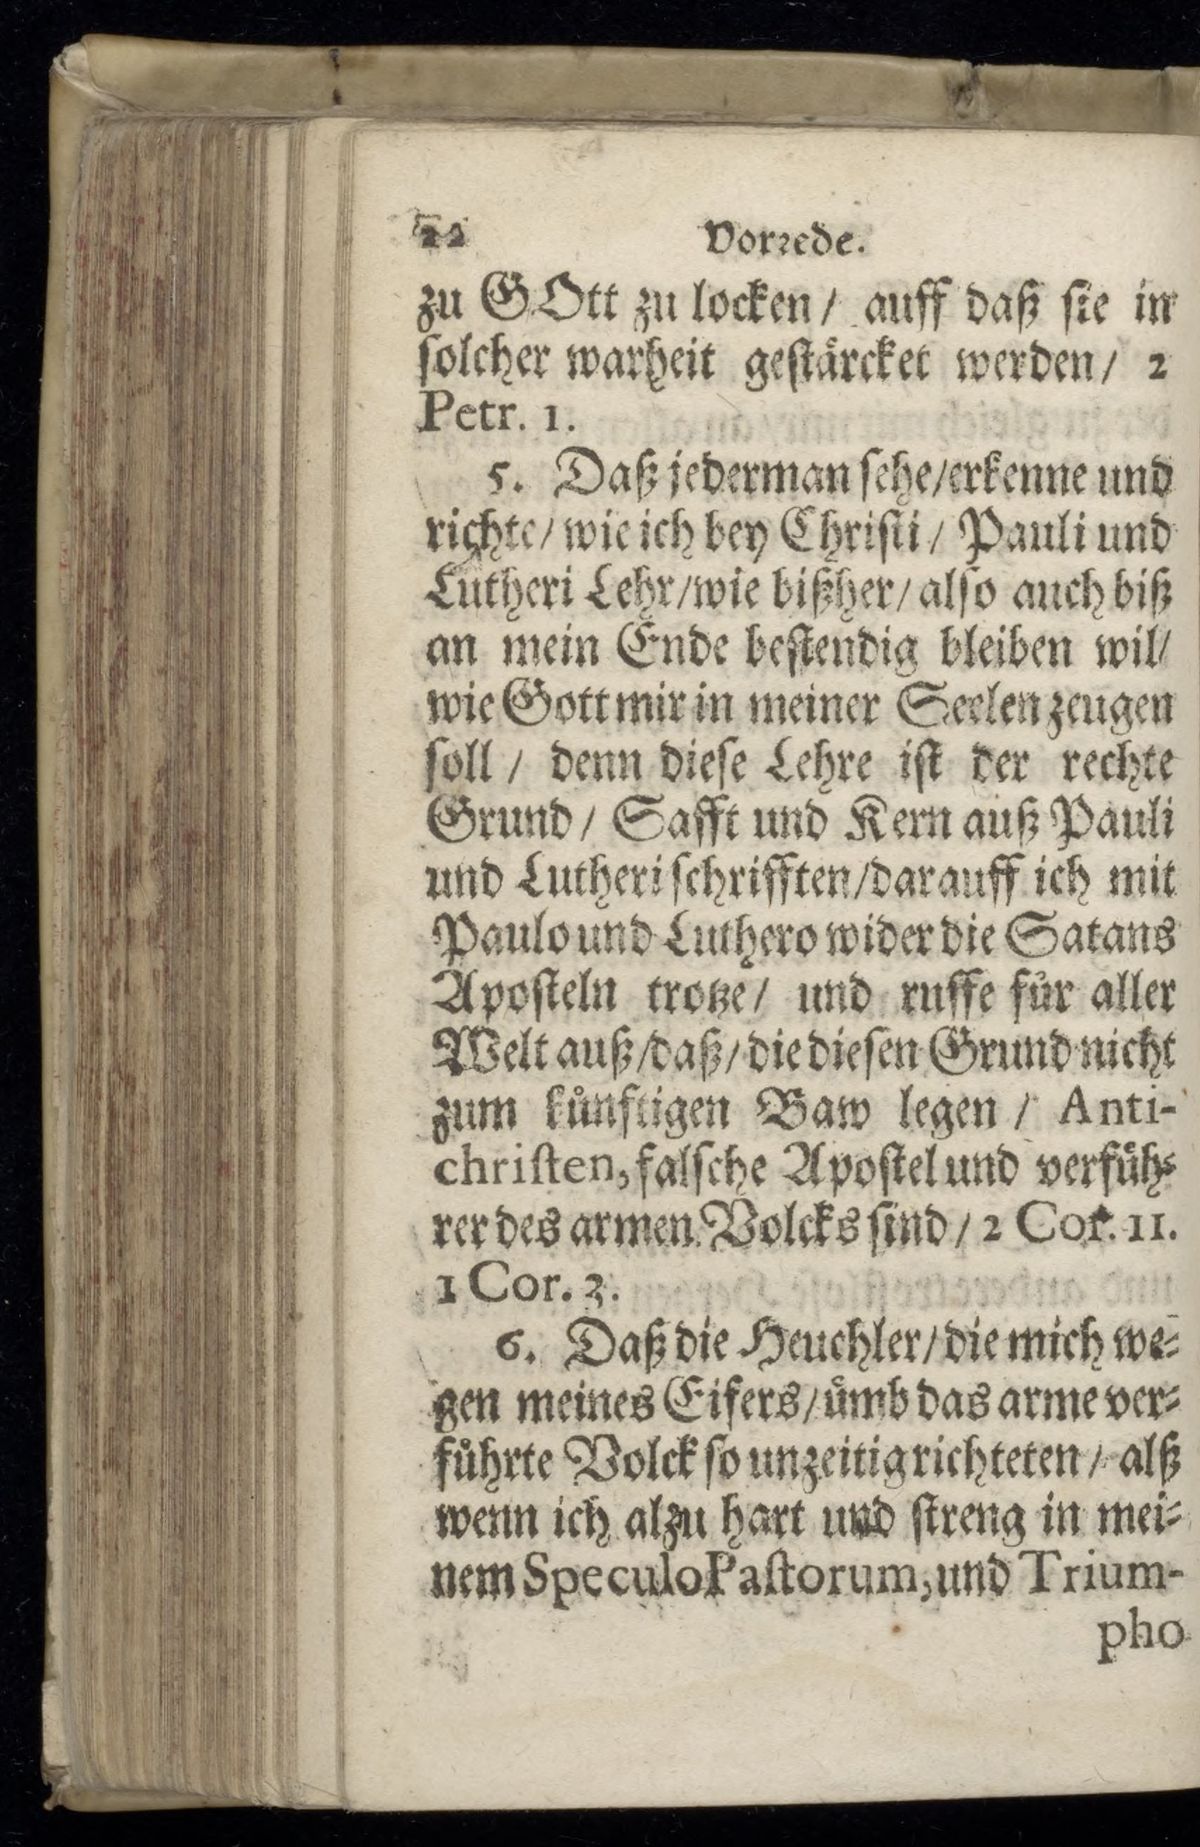 22 Vorrede.
zu GOtt zu locken / auff daß sie in
solcher warheit gestärcket werden / 2
Petr. 1.
5. Daß jederman sehe / erkenne und
richte / wie ich bey Christi / Pauli und
Lutheri Lehr / wie bißher / also auch biß
an mein Ende bestendig bleiben wil /
wie Gott mir in meiner Seelen zeugen
soll / denn diese Lehre ist der rechte
Grund / Safft und Kern auß Pauli
und Lutheri schrifften / darauff ich mit
Paulo und Luthero wider die Satans
Aposteln trotze / und ruffe für aller
Welt auß / daß / die diesen Grund nicht
zum künftigen Baw legen / Anti-
christen, falsche Apostel und verfüh-
rer des armen Volcks sind / 2 Cor. 11.
1 Cor. 3.
6. Daß die Heuchler / die mich we-
gen meines Eifers / ümb das arme ver-
führte Volck so unzeitig richteten / alß
wenn ich alzu hart und streng in mei-
nem Speculo Pastorum, und Trium-
pho